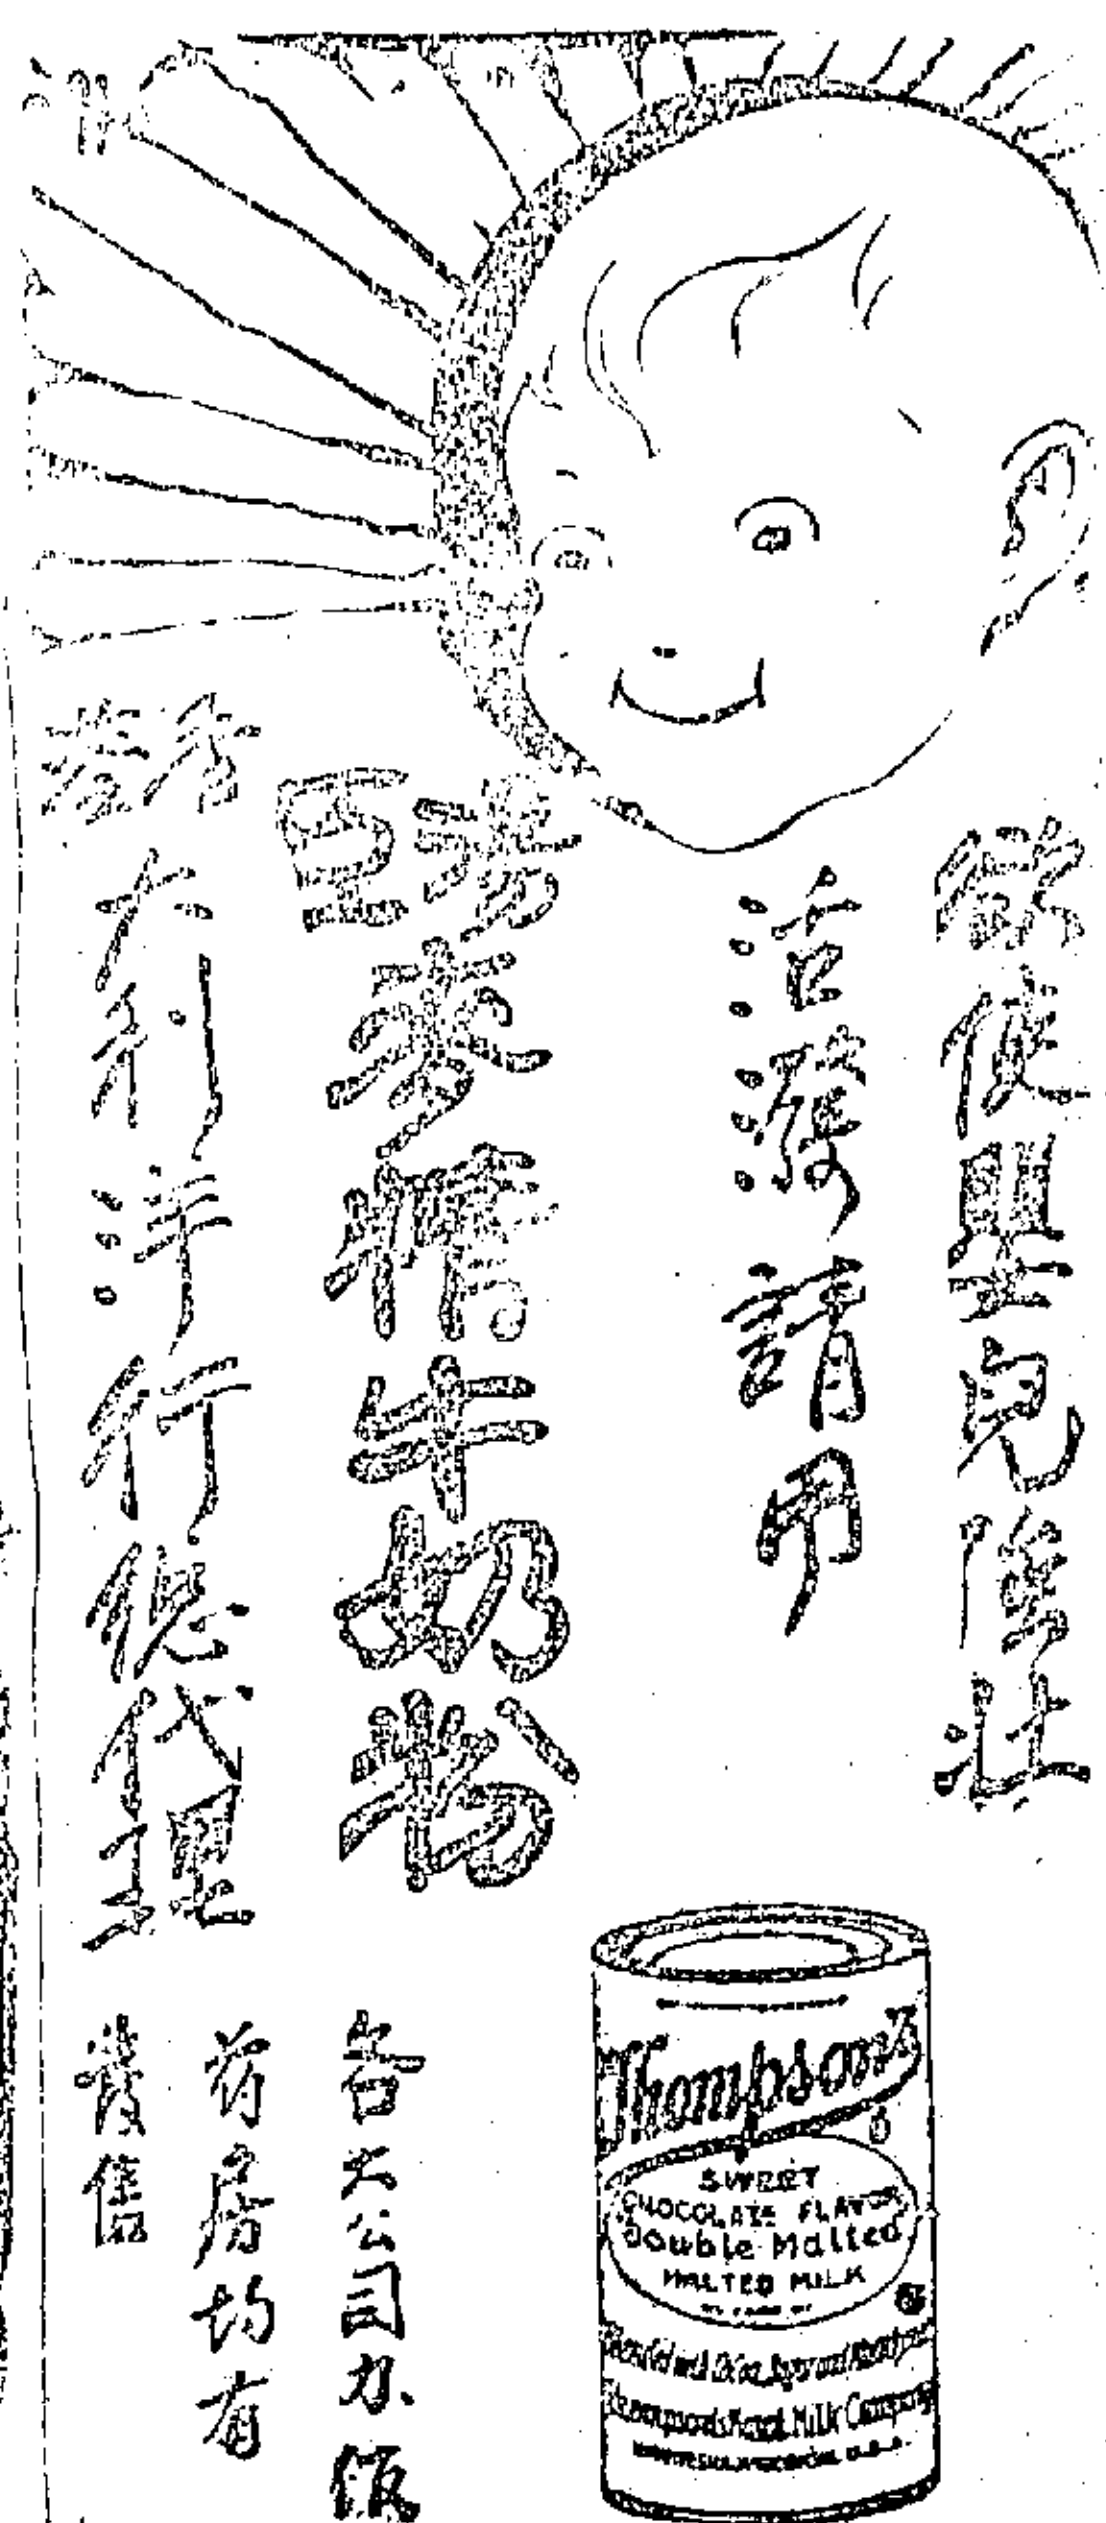 欲使嬰兒壯
活潑請用
湯臣麥精牛奶粉
香港大利洋行總代理
各大公司办館
药房均有
發售
Thompson's
SWEET
CHOCOLATE FLAVOR
Double Malted
MALTED MILK
Malted Milk Company
U.S.A.